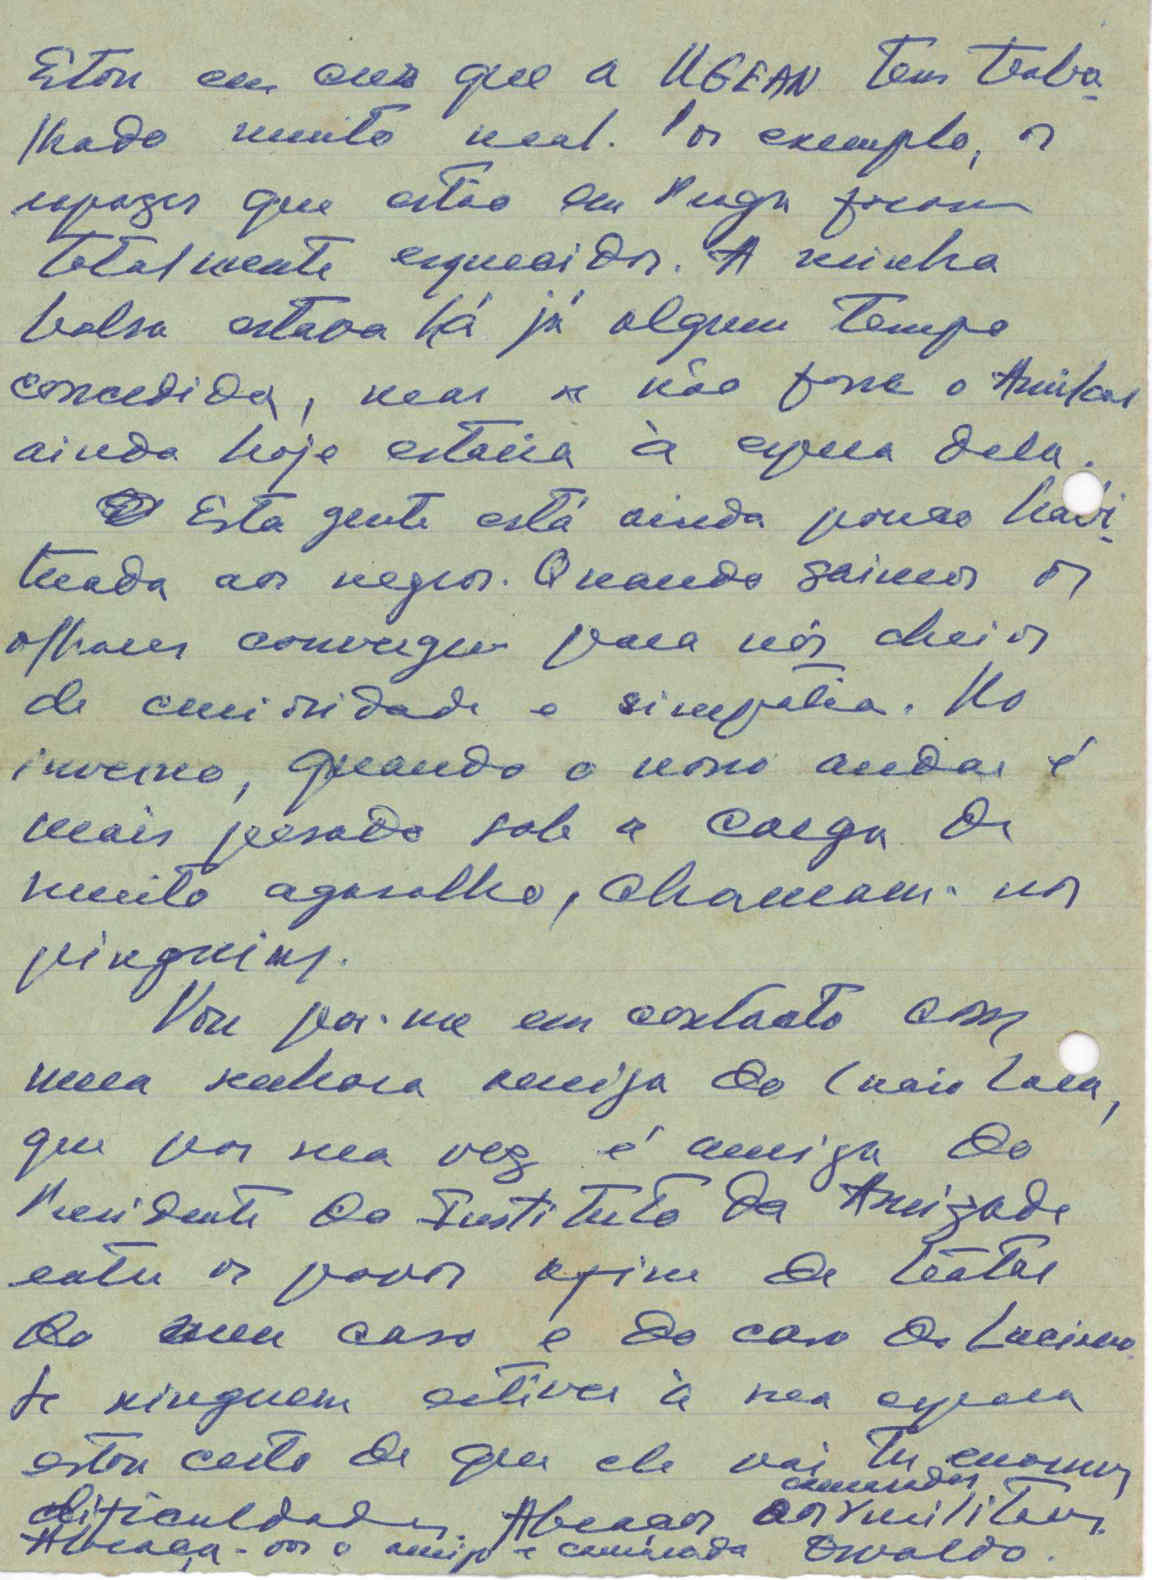 Estou em crer que a UGEAN tem traba-
lhado muito mal. Por exemplo, os
rapazes que estão em Praga foram
totalmente esquecidos. A minha
bolsa estava há já algum tempo
concedida, mas se não fosse o Amílcar
ainda hoje estaria à espera dela.
Esta gente está ainda pouco habi-
tuada aos negros. Quando saimos os
olhares convergem para nós cheios
de curiosidade e simpatia. No
inverno, quando o nosso andar é
mais pesado sob a carga de
muito agasalho, chamam-nos
pinguins.
Vou pôr-me em contacto com
uma senhora amiga do Lúcio Lara,
que por sua vez é amiga do
Presidente do Instituto da Amizade
entre os povos afim de tratar
do meu caso e do caso do Luciano.
Se ninguem estiver à sua espera
estou certo de que ele vai ter enormes
dificuldades. Abraços aos camaradas militares.
Abraça-vos o amigo e camarada Osvaldo.